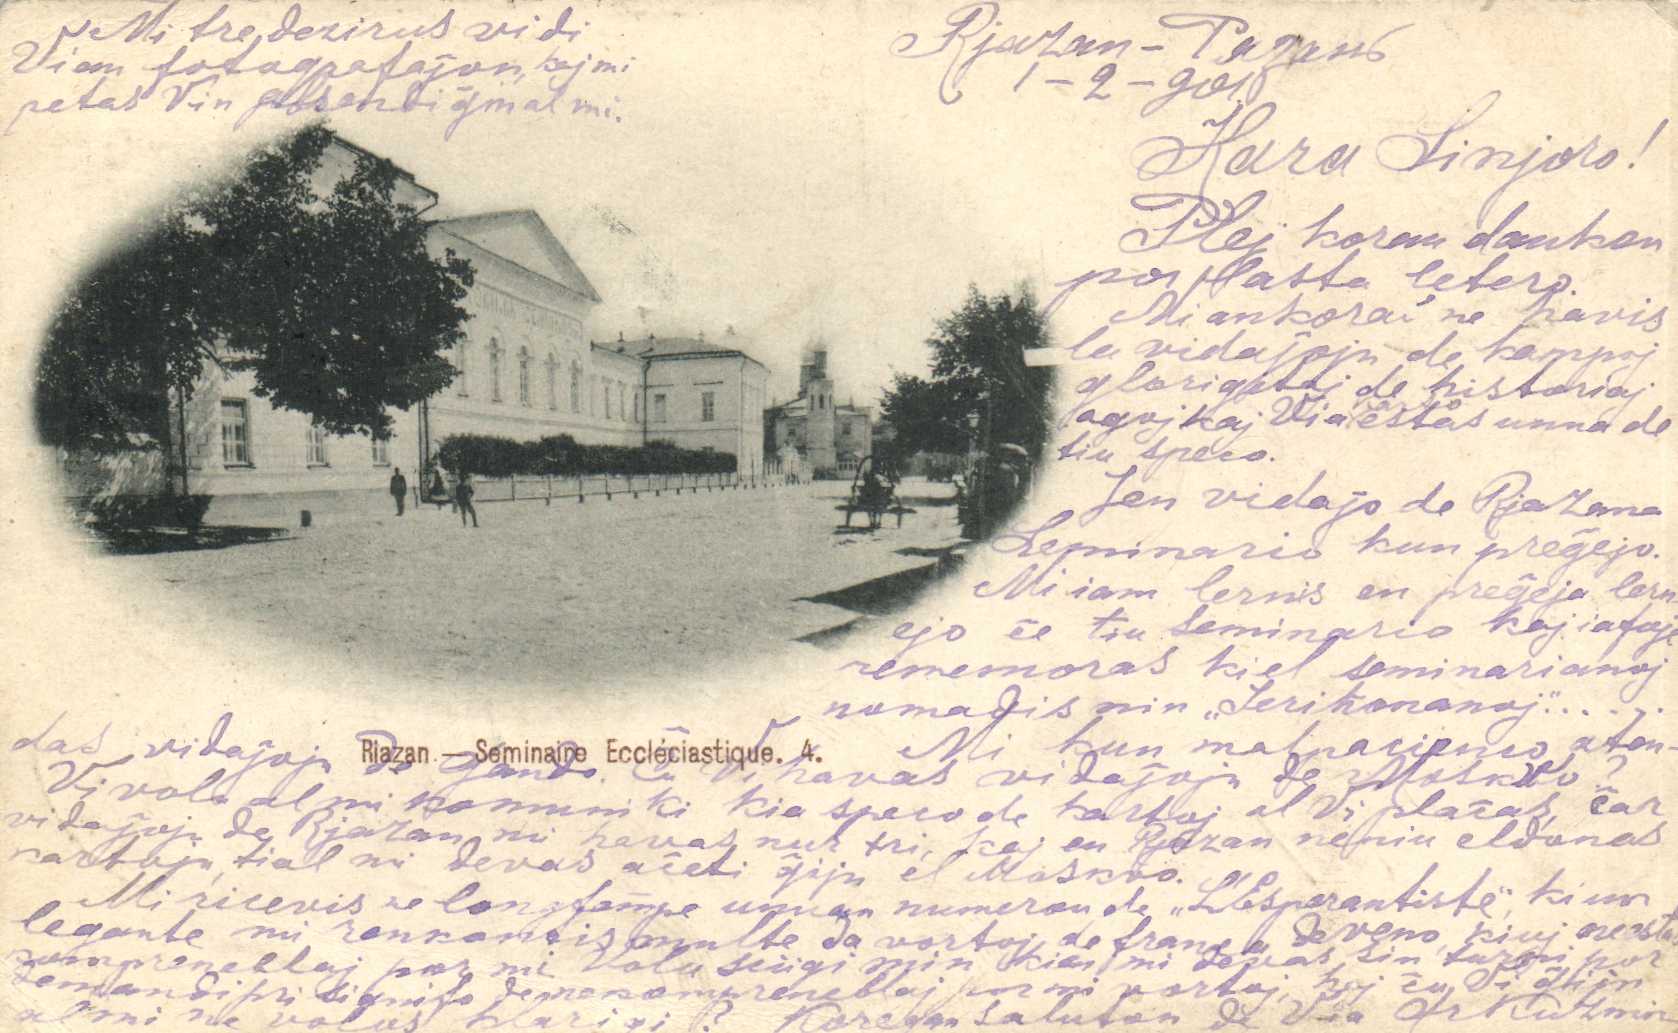 Mi tre dezirus vidi
Vian fotografaĵon, kaj mi
petas Vin alsendi ĝin al mi.
Rjazan - Рязань
1-2-901
Kara Sinjoro!
Plej koran dankon
por lasta letero.
Mi ankoraŭ ne havis
la vidaĵojn de kampoj
glorigataj de historiaj
agoj kaj Via estas unua de
tiu speco.
Jen vidaĵo de Rjazana
Seminario kun preĝejo.
Mi iam lernis en preĝeja lern
ejo ĉe tiu seminario kaj
rememoras kiel seminarianoj
nomadis nin „Jerikonanoj“....
Mi kun malpacienco aten
das vidaĵojn de Gando. Ĉu Vi havas vidaĵojn de Moskvo?
Vi volu al mi komuniki kia speco de kartoj al Vi plaĉas, ĉar
vidaĵojn de Rjazan mi havas nur tri, kaj en Rjazan neniu eldonas
kartojn, tial mi devas aĉeti ĝin el Moskvo.
Mi ricevis ne longtempe unuan numeron de „L'Espérantiste“, kiun
legante mi renkontis multe da vortoj de franca deveno, kiuj
kompreneblaj por mi. Volu sciigi min kien mi devas sin turni por
demandi pri signifo de nekompreneblaj por mi vortoj, kaj ĉu Vi ĝin
al mi ne volus klarigi? Koregan saluton de Via Kuzmin
Riazan — Seminaire Ecclésiastique. 4.
ДУХОВНАЯ СЕМИНАРІЯ